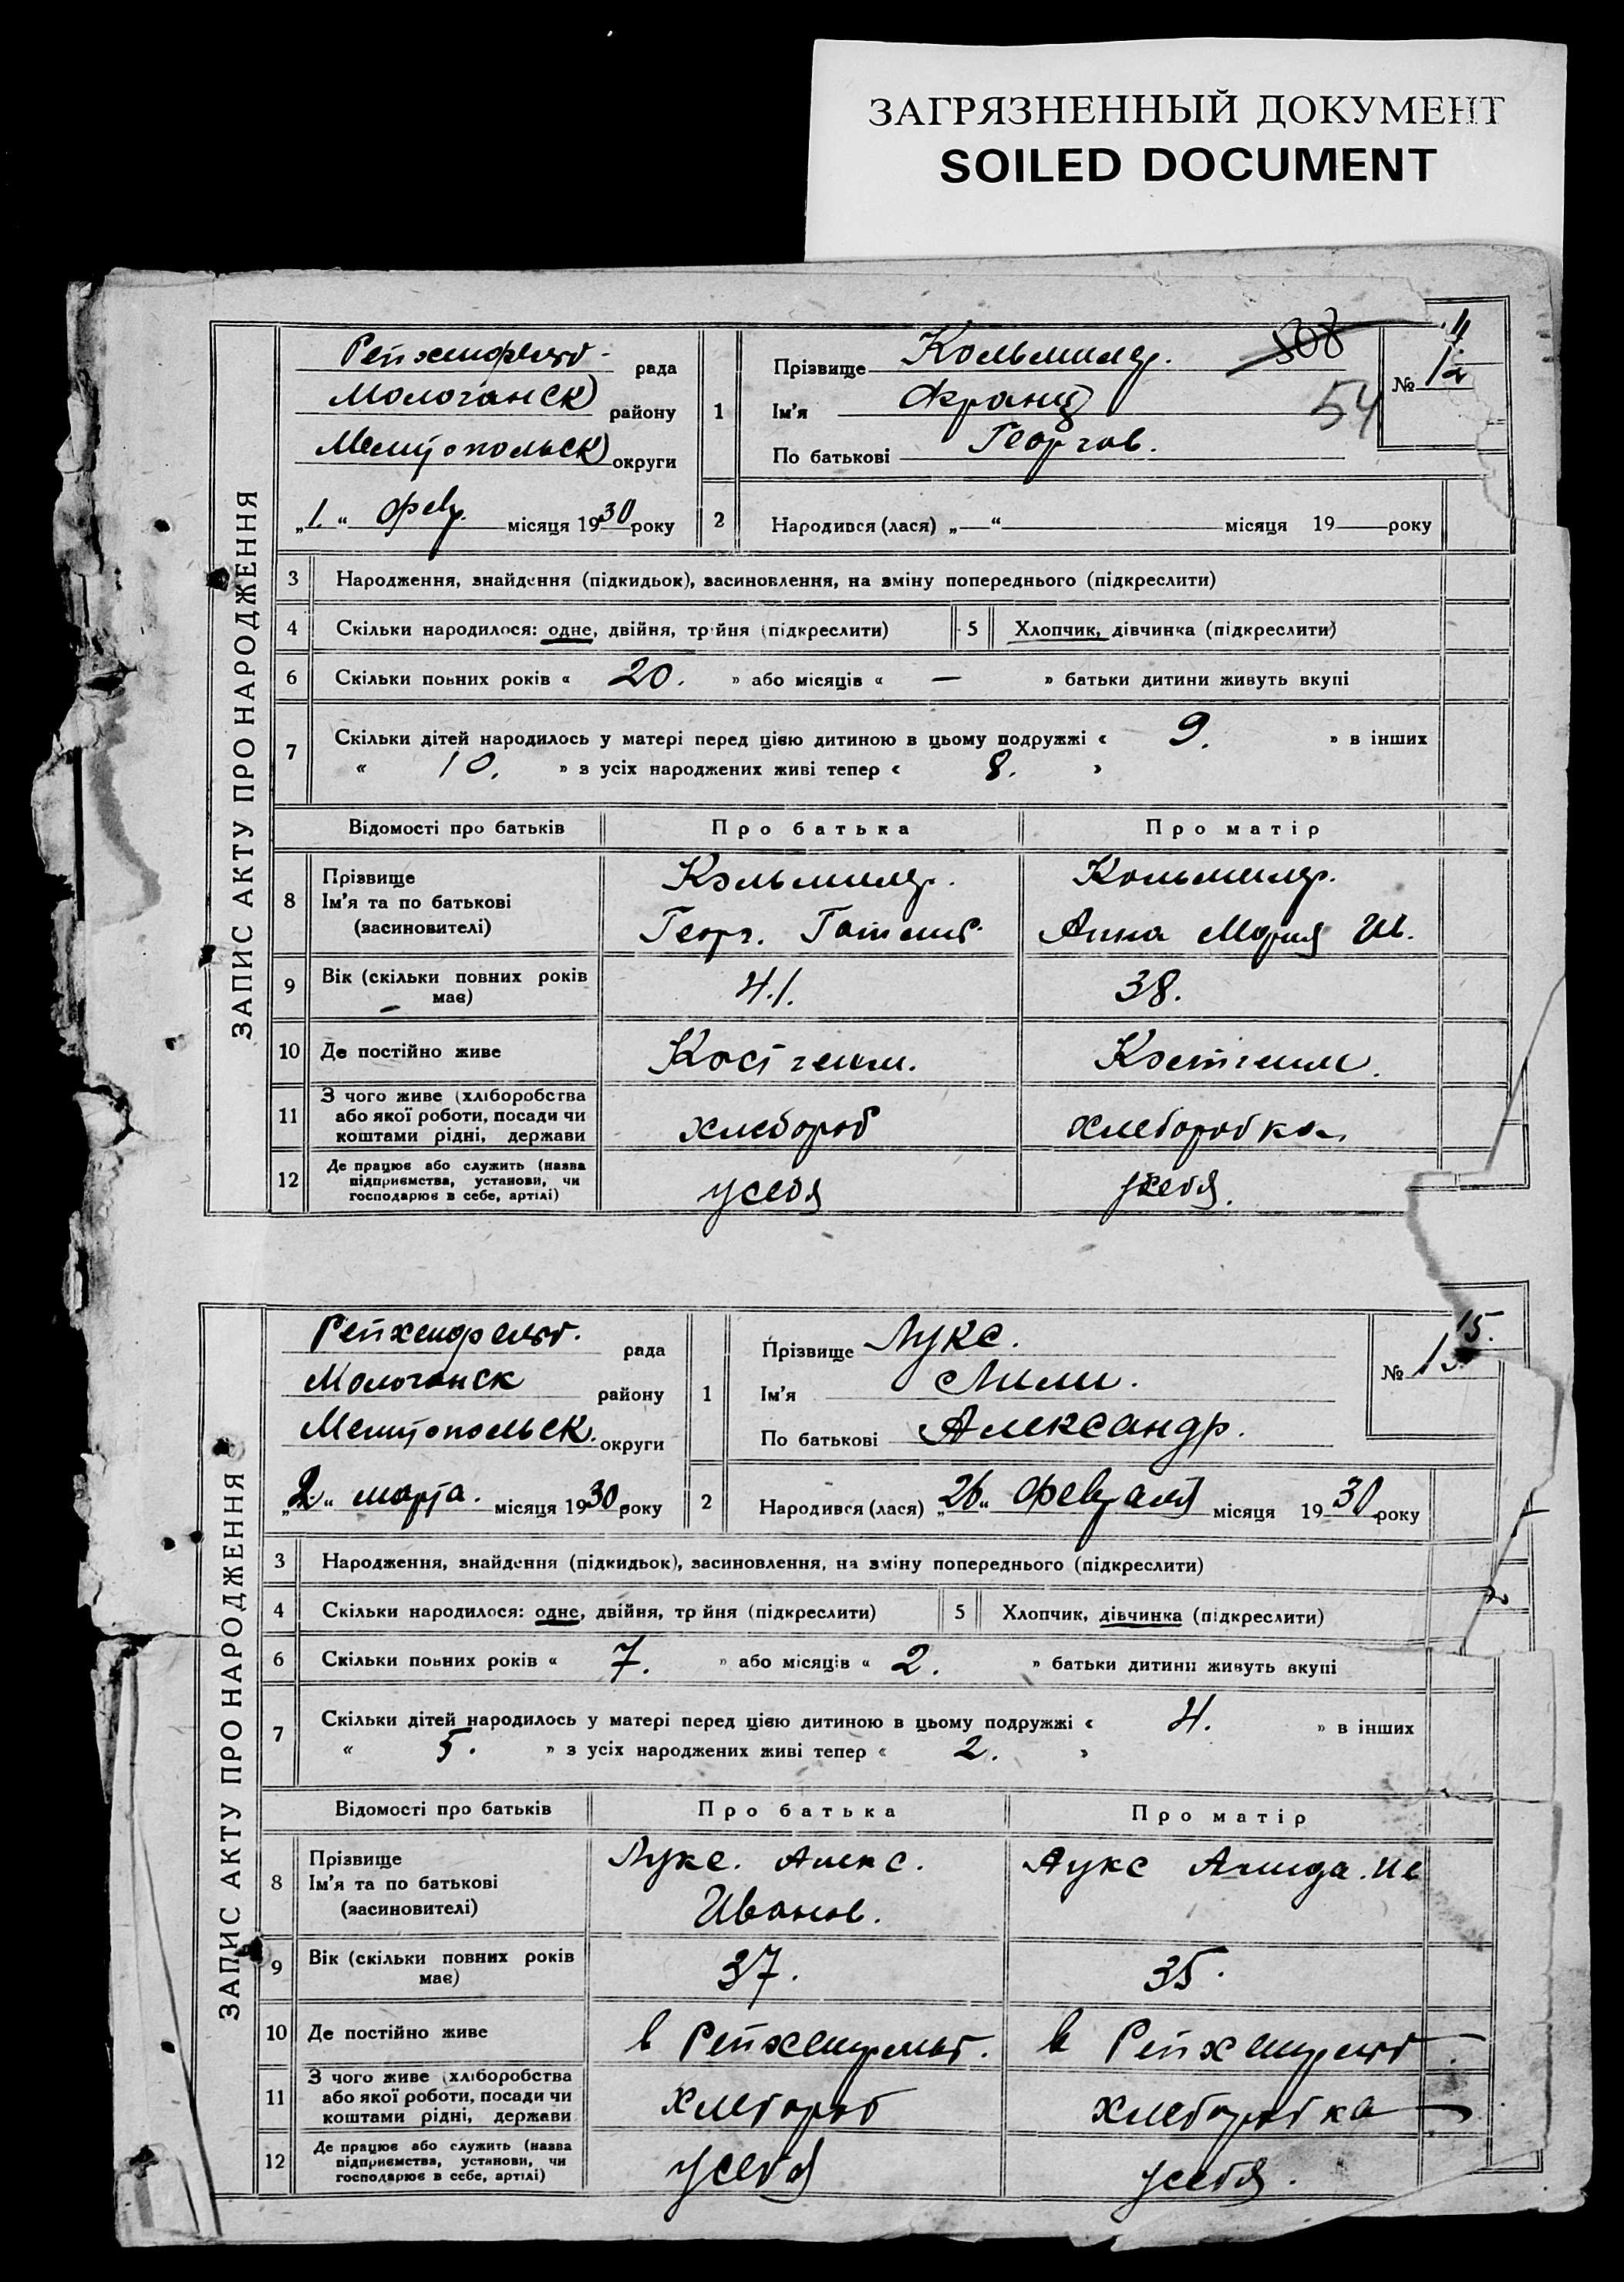 ЗАГРЯЗНЕННЫЙ ДОКУМЕНТ
SOILED DOCUMENT
ЗАПИС АКТУ ПРО НАРОДЖЕННЯ
Рейхенфельд рада
Молочанск району
Мелитопольск округи
„1.“ февр. місяця 1930 року
1
Прізвище Кольмиллер.
Ім'я Франц
По батькові Георгов.
54
№ 12
2 Народився (лася) „—“ місяця 19 року
3 Народження, знайдення (підкидьок), засиновлення, на зміну попереднього (підкреслити)
4 Скільки народилося: одне, двійня, трійня (підкреслити)
5 Хлопчик, дівчинка (підкреслити)
6 Скільки повних років « 20. » або місяців « — » батьки дитини живуть вкупі
7 Скільки дітей народилось у матері перед цією дитиною в цьому подружжі « 9. » в інших
« 10. » з усіх народжених живі тепер « 8. »
Відомості про батьків Про батька Про матір
8 Прізвище
Ім'я та по батькові
(засиновителі)
Кольмиллер.
Георг. Готлиб.
Кольмиллер.
Анна Мария Ив.
9 Вік (скільки повних років
має)
41. 38.
10 Де постійно живе Костгейм. Костгейм.
11 З чого живе (хліборобства
або якої роботи, посади чи
коштами рідні, держави
хлебороб хлеборобка
12 Де працює або служить (назва
підприємства, установи, чи
господарює в себе, артілі)
у себя у себя.
ЗАПИС АКТУ ПРО НАРОДЖЕННЯ
Рейхенфельд. рада
Молочанск району
Мелитопольск. округи
„2.“ марта. місяця 1930 року
1
Прізвище Лукс.
Ім'я Лили.
По батькові Александр.
№ 15.
2 Народився (лася) „26“ февраля місяця 1930 року
3 Народження, знайдення (підкидьок), засиновлення, на зміну попереднього (підкреслити)
4 Скільки народилося: одне, двійня, трійня (підкреслити)
5 Хлопчик, дівчинка (підкреслити)
6 Скільки повних років « 7. » або місяців « 2. » батьки дитини живуть вкупі
7 Скільки дітей народилось у матері перед цією дитиною в цьому подружжі « 4. » в інших
« 5. » з усіх народжених живі тепер « 2. »
Відомості про батьків Про батька Про матір
8 Прізвище
Ім'я та по батькові
(засиновителі)
Лукс. Алекс.
Иванов.
Лукс Ив
9 Вік (скільки повних років
має)
37. 35.
10 Де постійно живе в Рейхенфельд. в Рейхенфельд
11 З чого живе (хліборобства
або якої роботи, посади чи
коштами рідні, держави
хлебороб хлеборобка
12 Де працює або служить (назва
підприємства, установи, чи
господарює в себе, артілі)
у себя у себя.